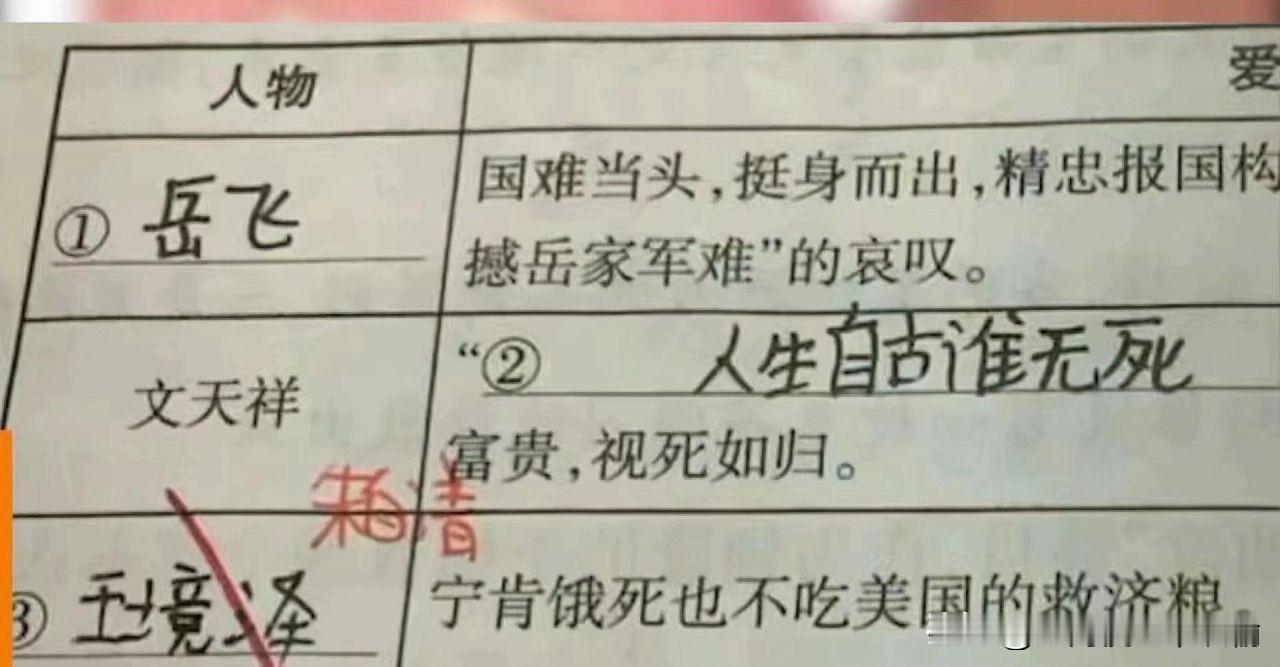 人物
爱
① 岳飞
国难当头,挺身而出,精忠报国构
撼岳家军难”的哀叹。
文天祥
“② 人生自古谁无死
富贵,视死如归。
朱自清
③ 王境泽
宁肯饿死也不吃美国的救济粮